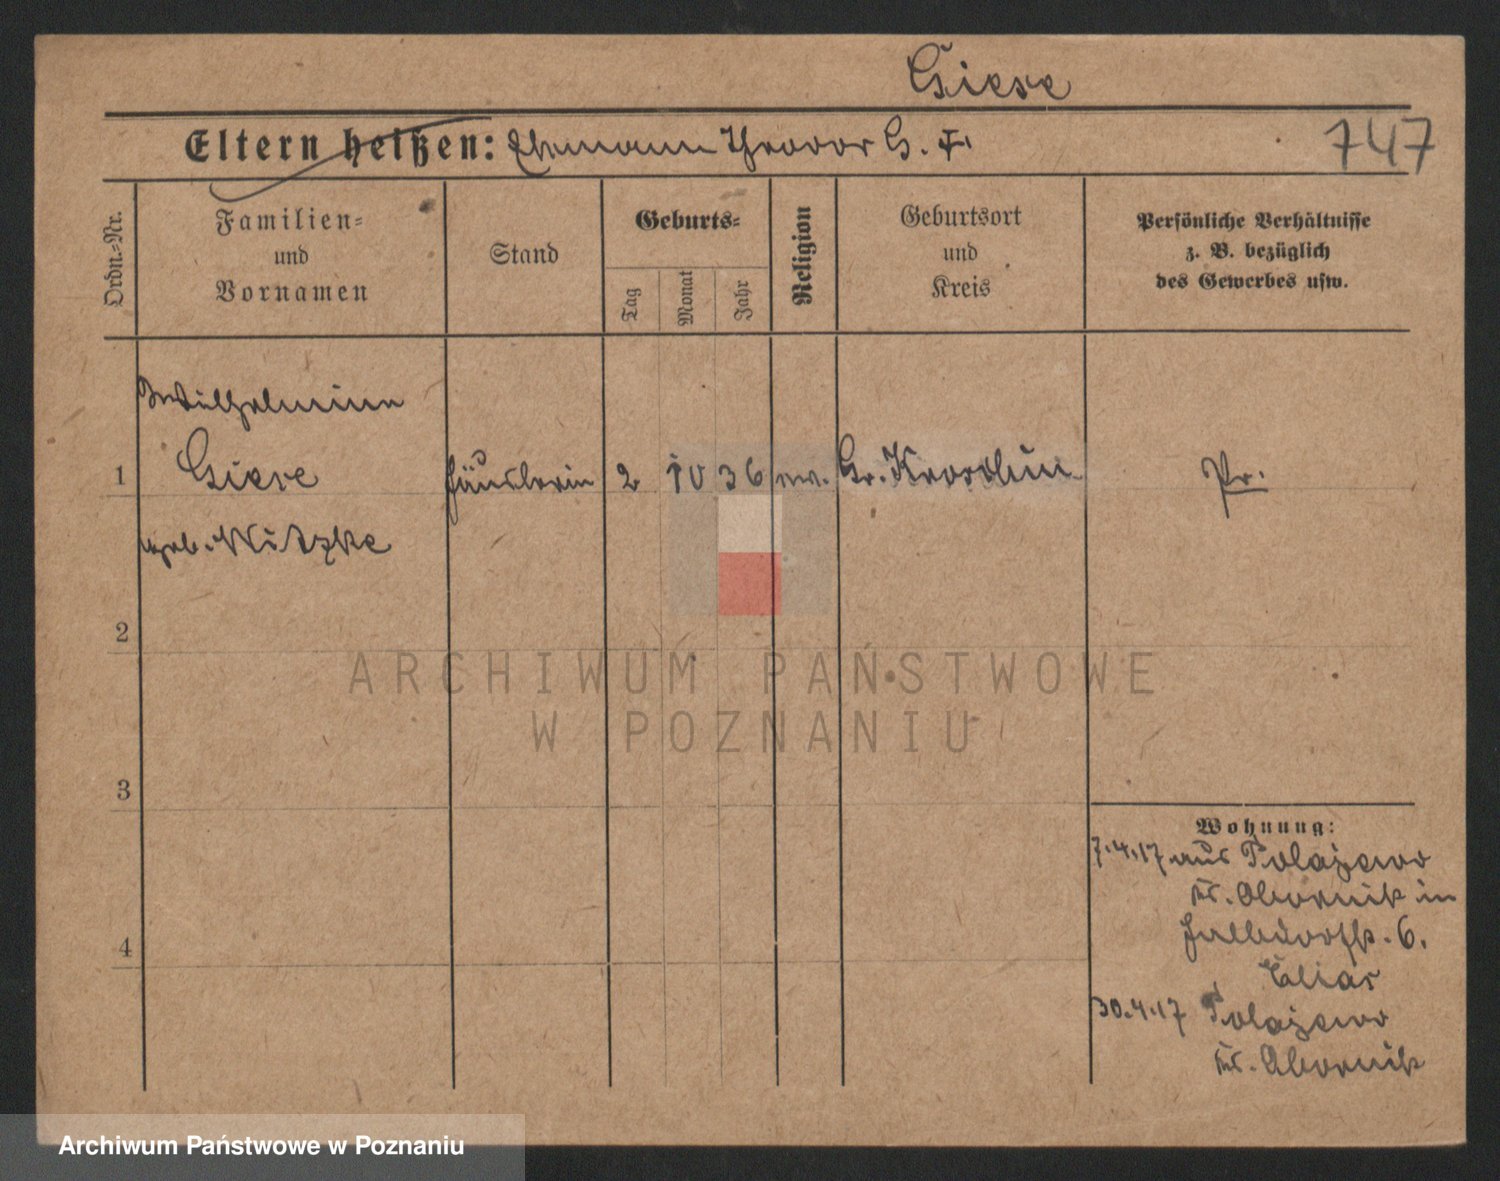 Giese
Eltern heißen: Ehemann Theodor G. †.
747
Ordn.-Nr.
Familien-
und
Vornamen
Stand
Geburts-
Tag
Monat
Jahr
Religion
Geburtsort
und
Kreis
Persönliche Verhältnisse
z. B. bezüglich
des Gewerbes usw.
Wilhelmine
1 Giese Häuslerin 2 10 36 ev. Gr. Pr.
geb.
2
3
4
Wohnung:
7.4.17 aus Polajewo
Kr. Obornik in
6.
Elias
30.4.17 Polajewo
Kr. Obornik
ARCHIWUM PAŃSTWOWE
W POZNANIU
Archiwum Państwowe w Poznaniu